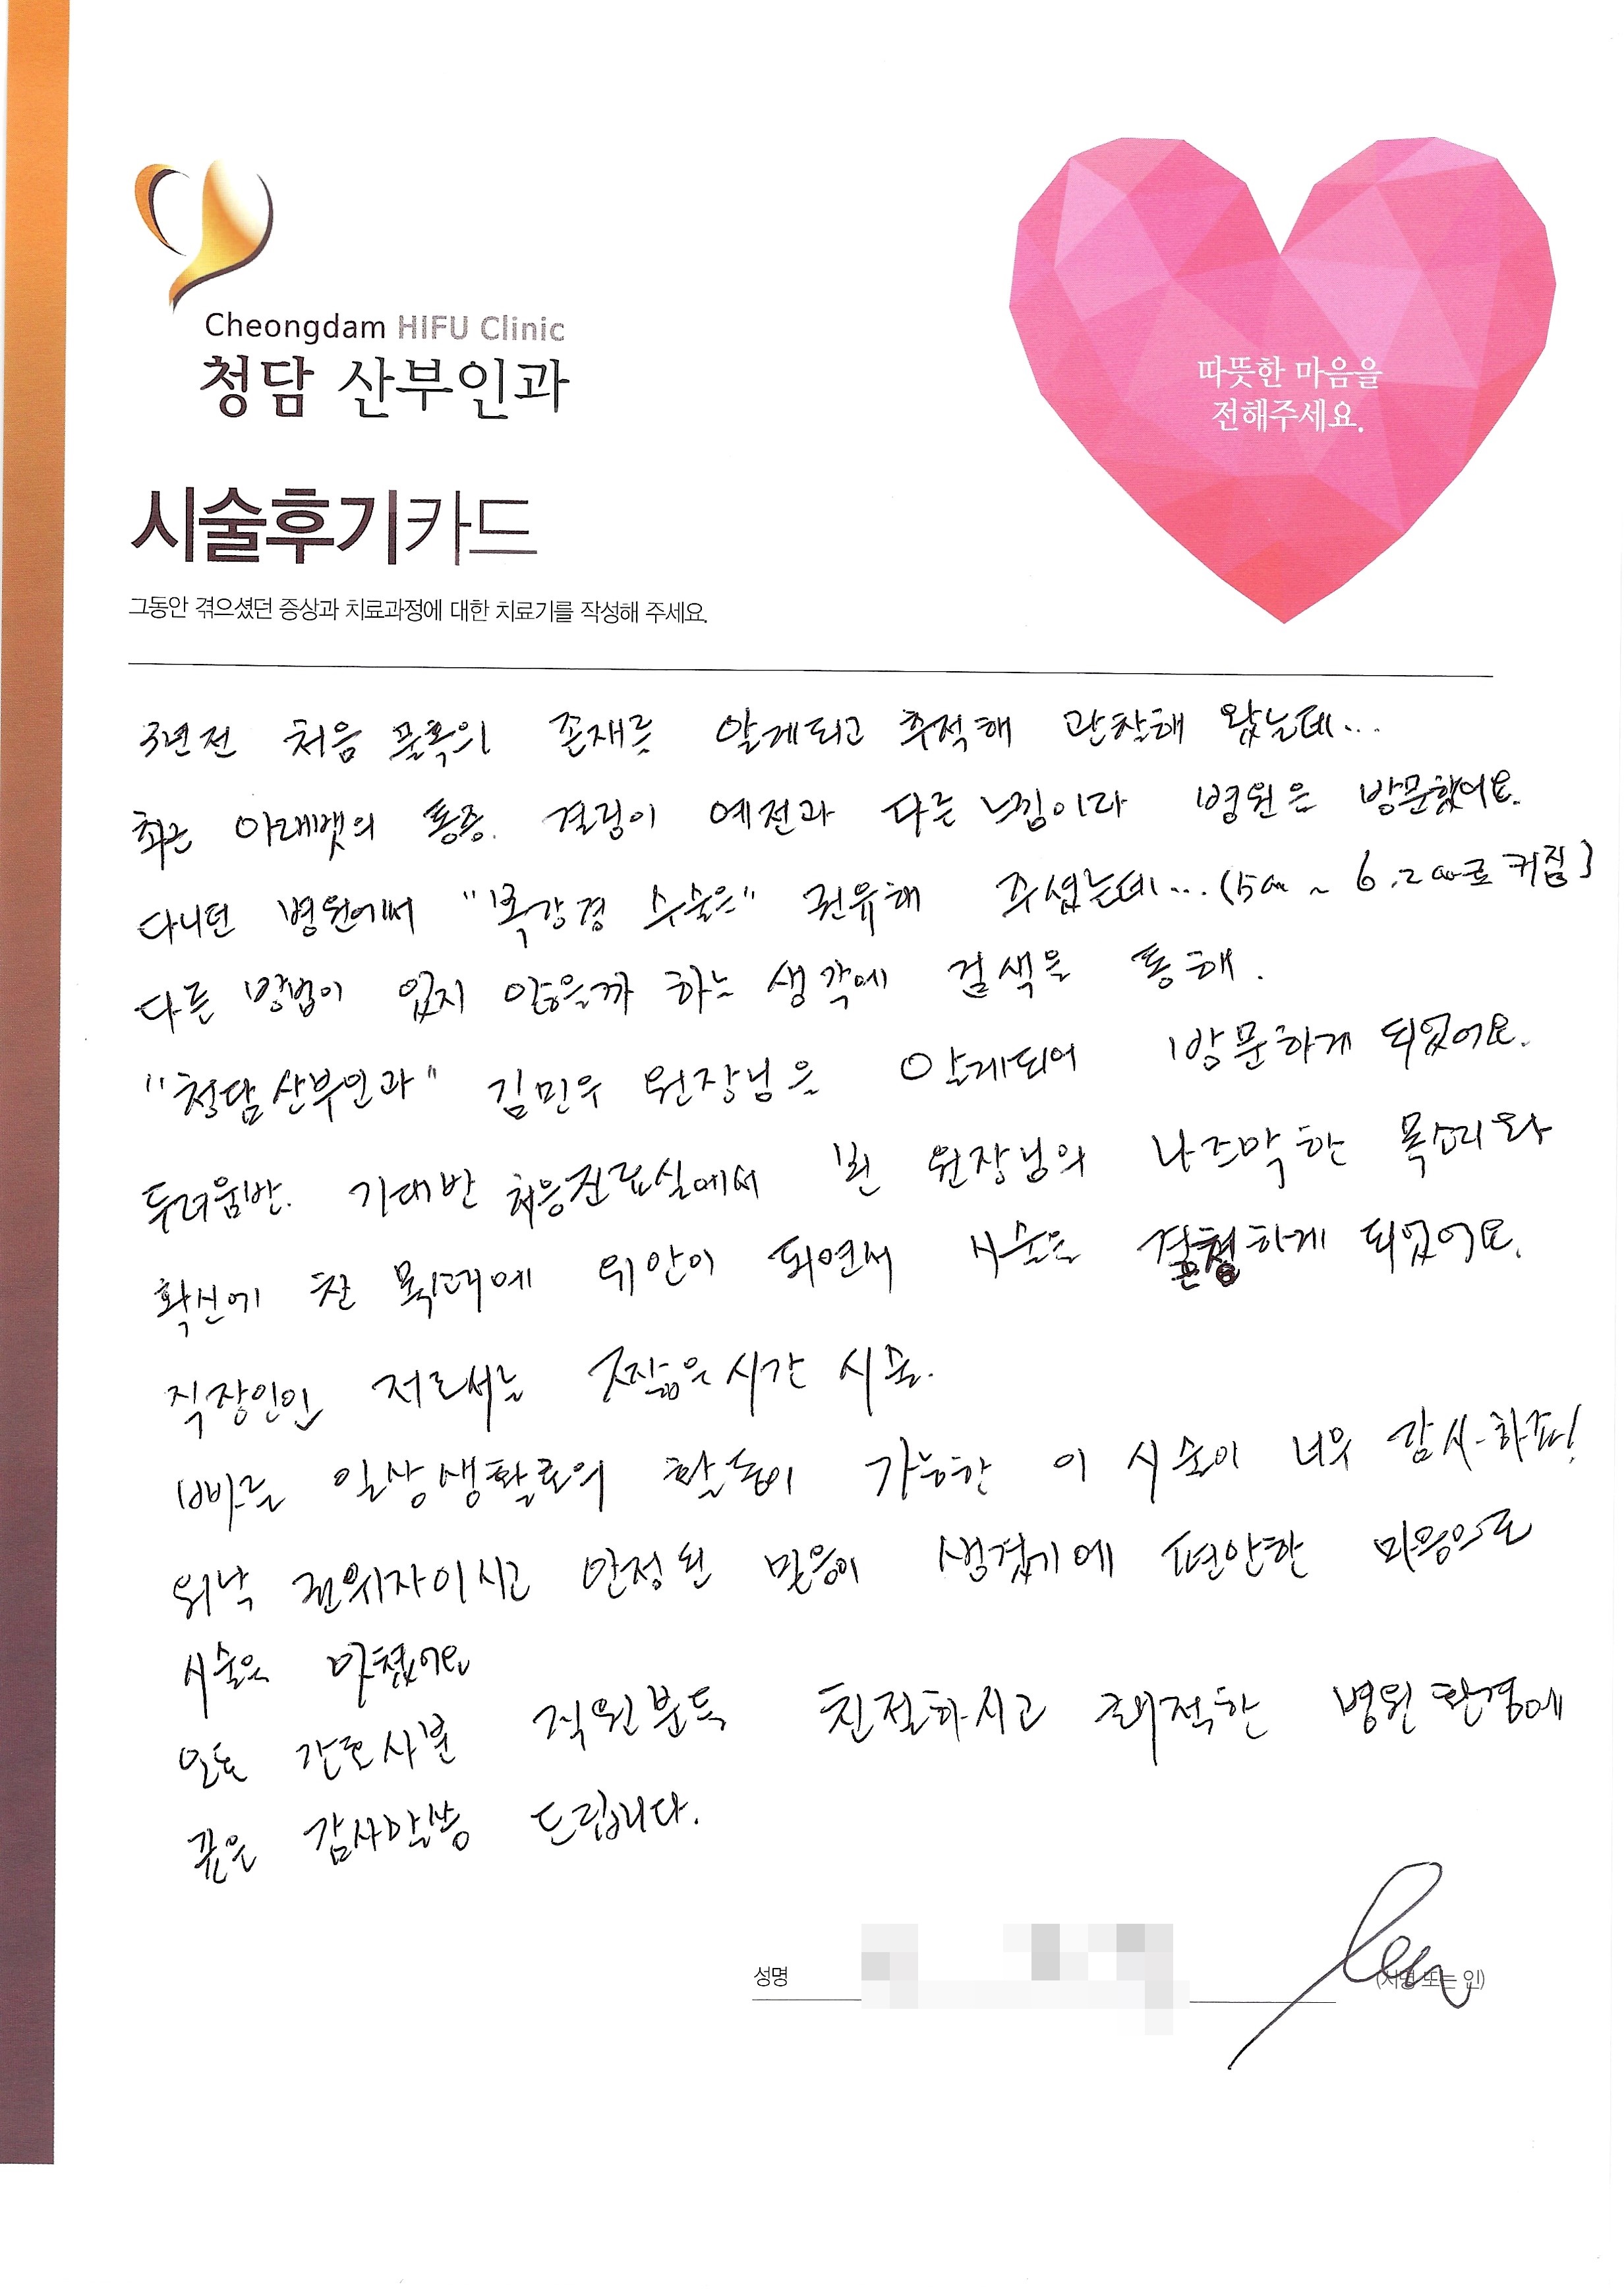 Cheongdam HIFU Clinic
청담 산부인과
따뜻한 마음을
전해주세요.
시술후기카드
그동안 겪으셨던 증상과 치료과정에 대한 치료기를 작성해 주세요.
3년전 처음 물혹의 존재를 알게되고 추적해 관찰해 왔는데...
최근 아래뱃의 통증. 결림이 예전과 다른 느낌이라 병원을 방문했어요.
다니던 병원에서 "복강경 수술을" 권유해 주셨는데...(5cm ~ 6.2cm로 커짐)
다른 방법이 있지 않을까 하는 생각에 검색을 통해.
"청담산부인과" 김민우 원장님을 알게되어 방문하게 되었어요.
두려움반. 기대반 처음진료실에서 뵌 원장님의 나즈막한 목소리와
확신에 찬 목소리에 위안이 되면서 시술을 결정하게 되었어요.
직장인인 저로서는 짧은시간 시술.
빠른 일상생활로의 활동이 가능한 이 시술이 너무 감사하죠!
워낙 권위자이시고 안정된 믿음이 생겼기에 편안한 마음으로
시술을 마쳤어요
모든 간호사분 직원분들 친절하시고 쾌적한 병원환경에
감사말씀 드립니다.
성명
(서명 또는 인)